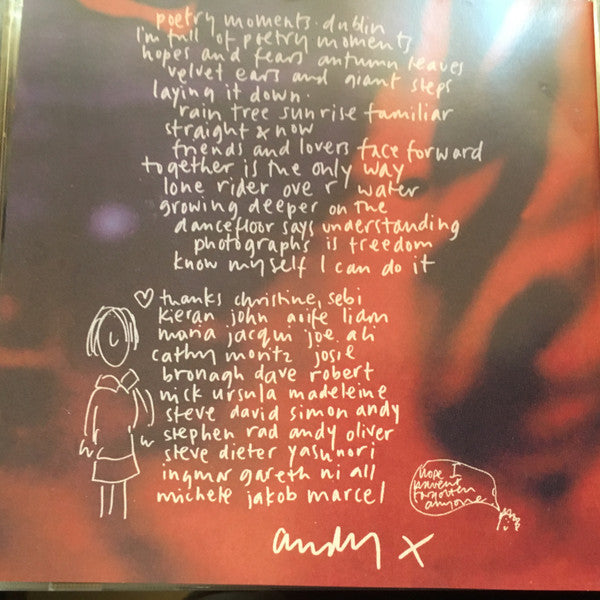 poetry moments. dublin
i'm full of poetry moments
hopes and fears autumn leaves
velvet ears and giant steps
laying it down.
rain tree sunrise familiar
straight & now
friends and lovers face forward
together is the only way
lone rider over water
growing deeper on the
dancefloor says understanding
photographs is freedom
know myself i can do it
thanks christine, sebi
kieran john aoife liam
maria jacqui joe ali
cathy moritz josie
bronagh dave robert
nick ursula madeleine
steve david simon andy
stephen rad andy oliver
steve dieter yasunori
ingmar gareth niall
michele jakob marcel
hope I
havent
forgotten
anyone
andy x